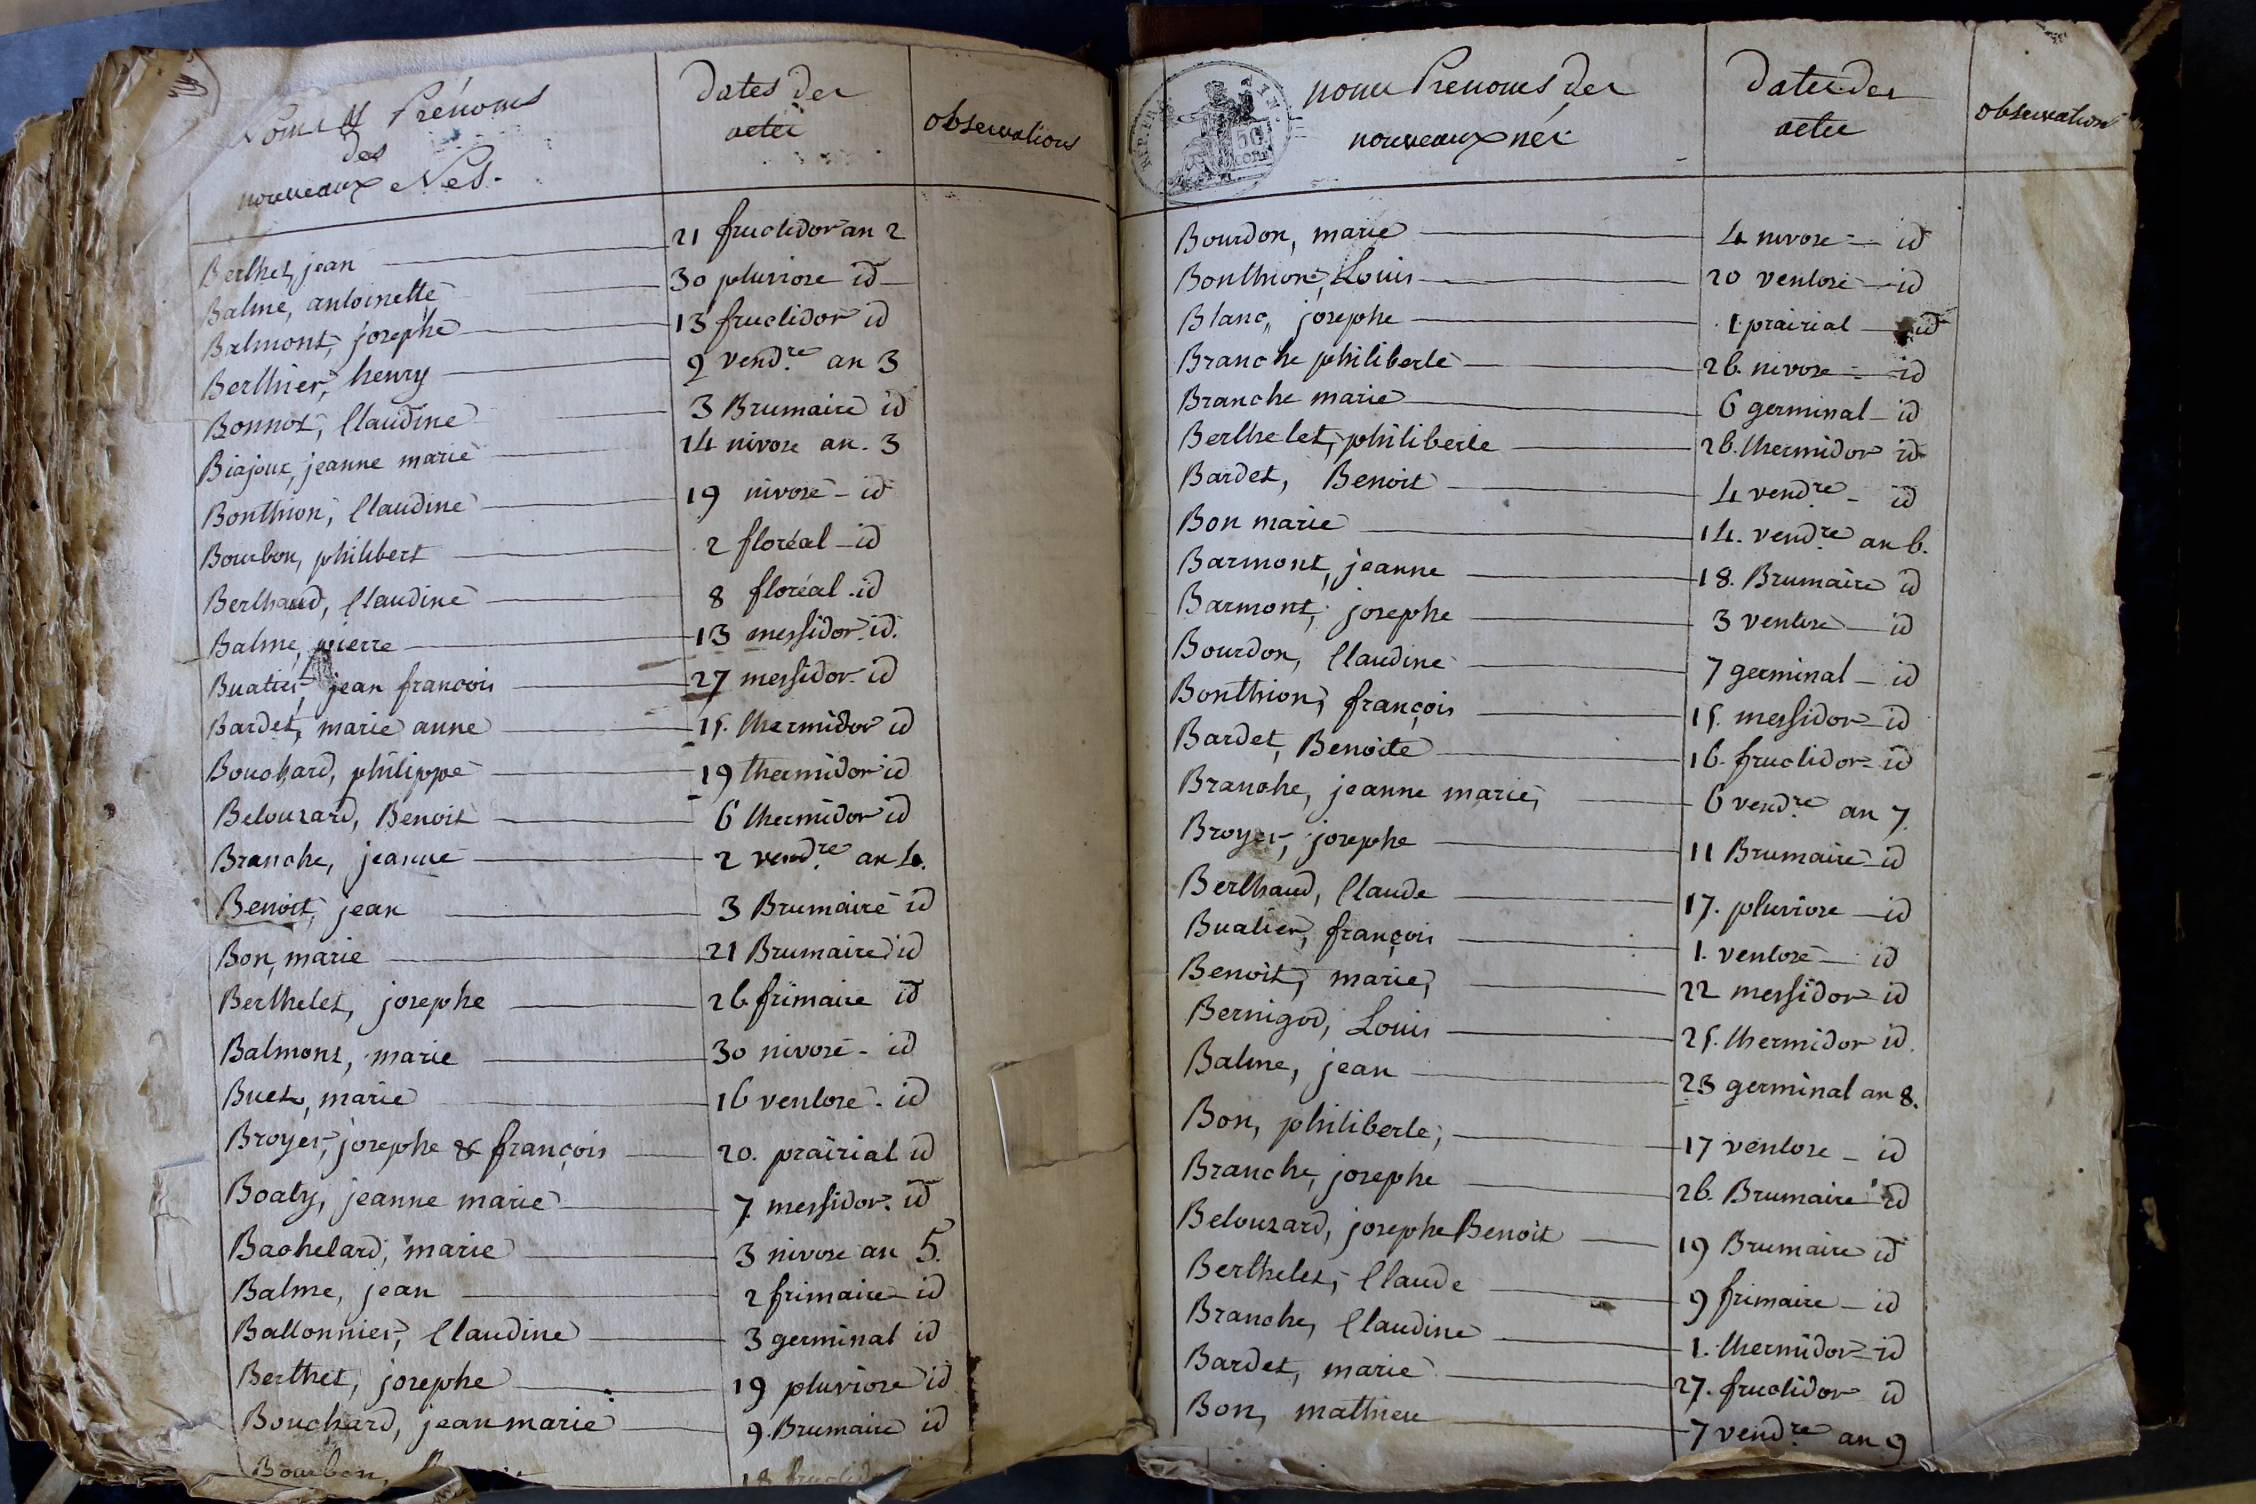 Noms & Prénoms
des
nouveaux Nés.
dates des
actes
observations
Berthet, jean 21 fructidor an 2
Balme, antoinette 30 pluviose id
Balmont, josephe 13 fructidor id
Berthier, henry 9 vend.re an 3
Bonnot, Claudine 3 Brumaire id
Biajoux, jeanne marie 14 nivose an. 3
Bonthion, Claudine 19 nivose id
Bourbon, philibert 2 floréal id
Berthaud, Claudine 8 floréal id
Balme, pierre 13 messidor id.
Buatier, jean francois 27 messidor id
Bardet, marie anne 15. thermidor id
Bouchard, philippe 19 thermidor id
Belouzard, Benoit 6 thermidor id
Branche, jeanne 2 vend.re an 4.
Benoit, jean 3 Brumaire id
Bon, marie 21 Brumaire id
Berthelet, josephe 26 frimaire id
Balmont, marie 30 nivose id
Buet, marie 16 ventose id
Broyer, josephe & françois 20. prairial id
Boaty, jeanne marie 7 messidor id
Bachelard, marie 3 nivose an 5.
Balme, jean 2 frimaire id
Ballonnier, Claudine 3 germinal id
Berthet, josephe 19 pluviose id
Bouchard, jean marie 9. Brumaire id
Bourbon, 18 fructidor
noms Prénoms des
nouveaux nés
dates des
actes
observations
50
Bourdon, marie 4 nivose id
Bonthion, Louis 20 ventose id
Blanc, josephe 1 prairial id
Branche philiberte 26. nivose id
Branche marie 6 germinal id
Berthelet, philiberte 26. thermidor id
Bardet, Benoit 4 vend.re id
Bon marie 14. vend.re an 6.
Barmont, jeanne 18. Brumaire id
Barmont, josephe 3 ventose id
Bourdon, Claudine 7 germinal id
Bonthion, françois 15. messidor id
Bardet, Benoite 16. fructidor id
Branche, jeanne marie, 6 vend.re an 7.
Broyer, josephe 11 Brumaire id
Berthaud, Claude 17. pluviose id
Buatier, françois 1. ventose id
Benoit, marie, 22 messidor id
Bernigod, Louis 25. thermidor id.
Balme, jean 23 germinal an 8.
Bon, philiberte, 17 ventose id
Branche, josephe 26. Brumaire id
Belouzard, josephe Benoit 19 Brumaire id
Berthelet, Claude 9 frimaire id
Branche, Claudine 1. thermidor id
Bardet, marie 27. fructidor id
Bon, mathieu 7 vend.re an 9